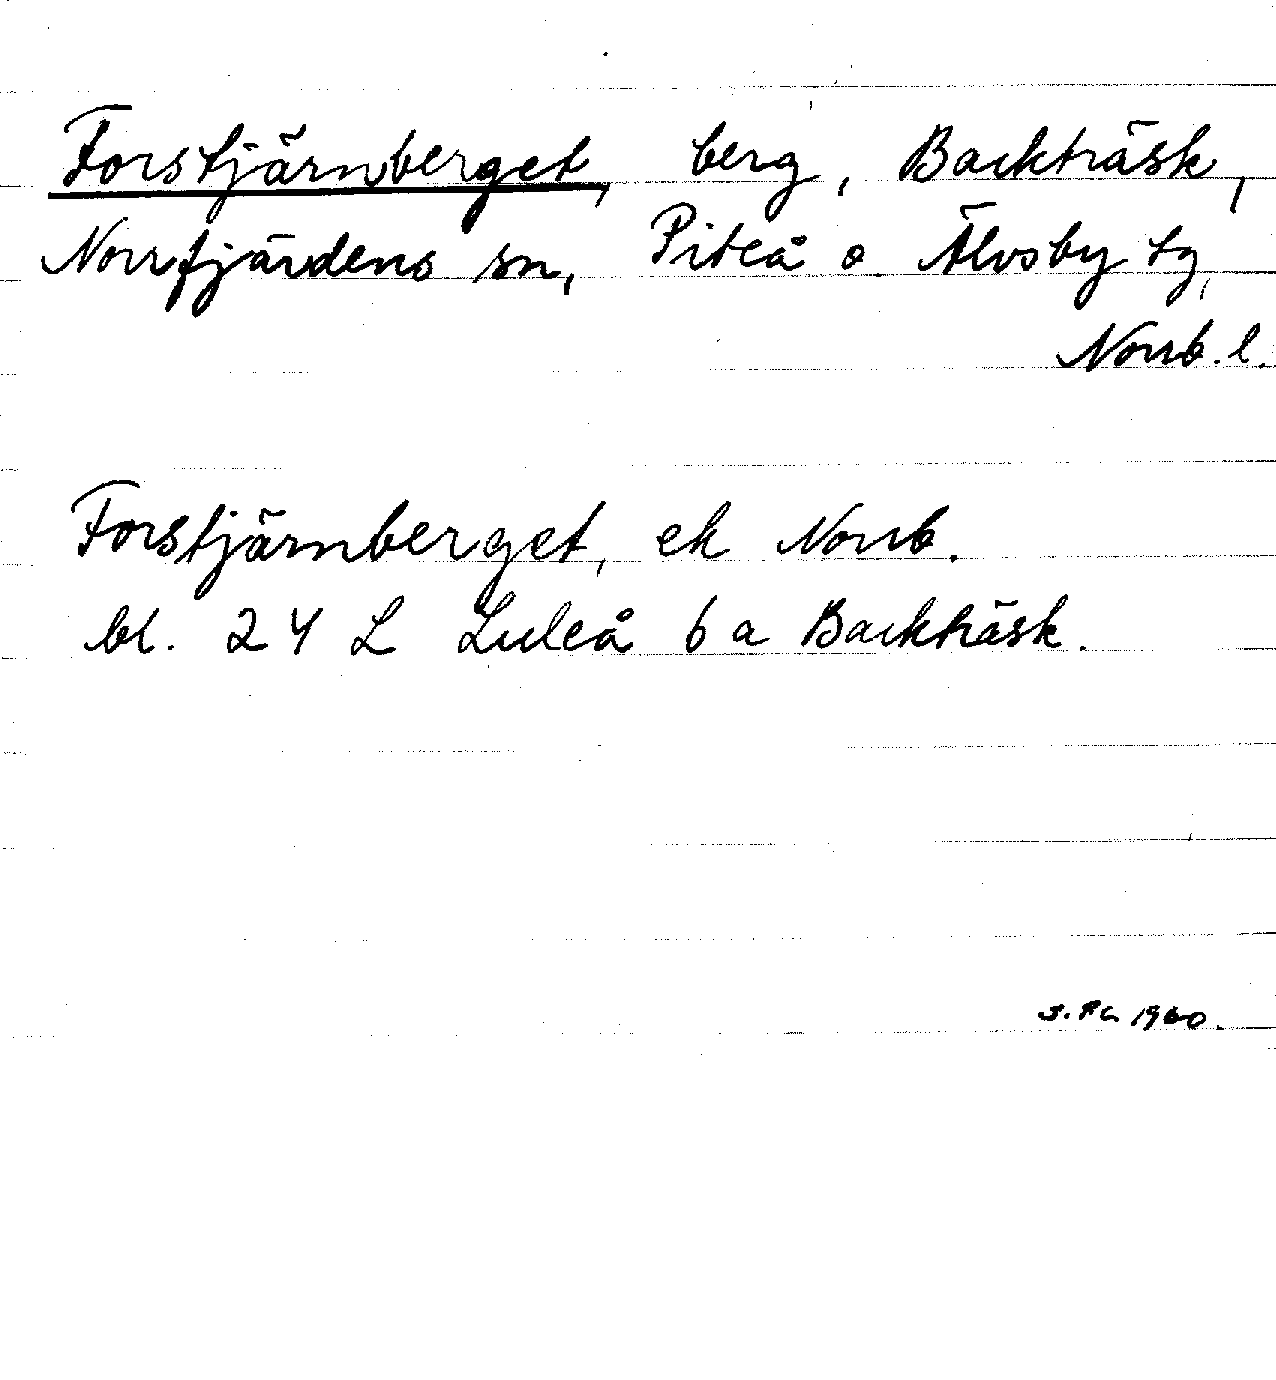 Forstjärnberget, berg, Backträsk,
Norrfjärdens sn, Piteå o. Älvsby tg,
Norrb. l.
Forstjärnberget, ek Norrb.
bl. 24 L Luleå 6 a Backträsk.
1960.